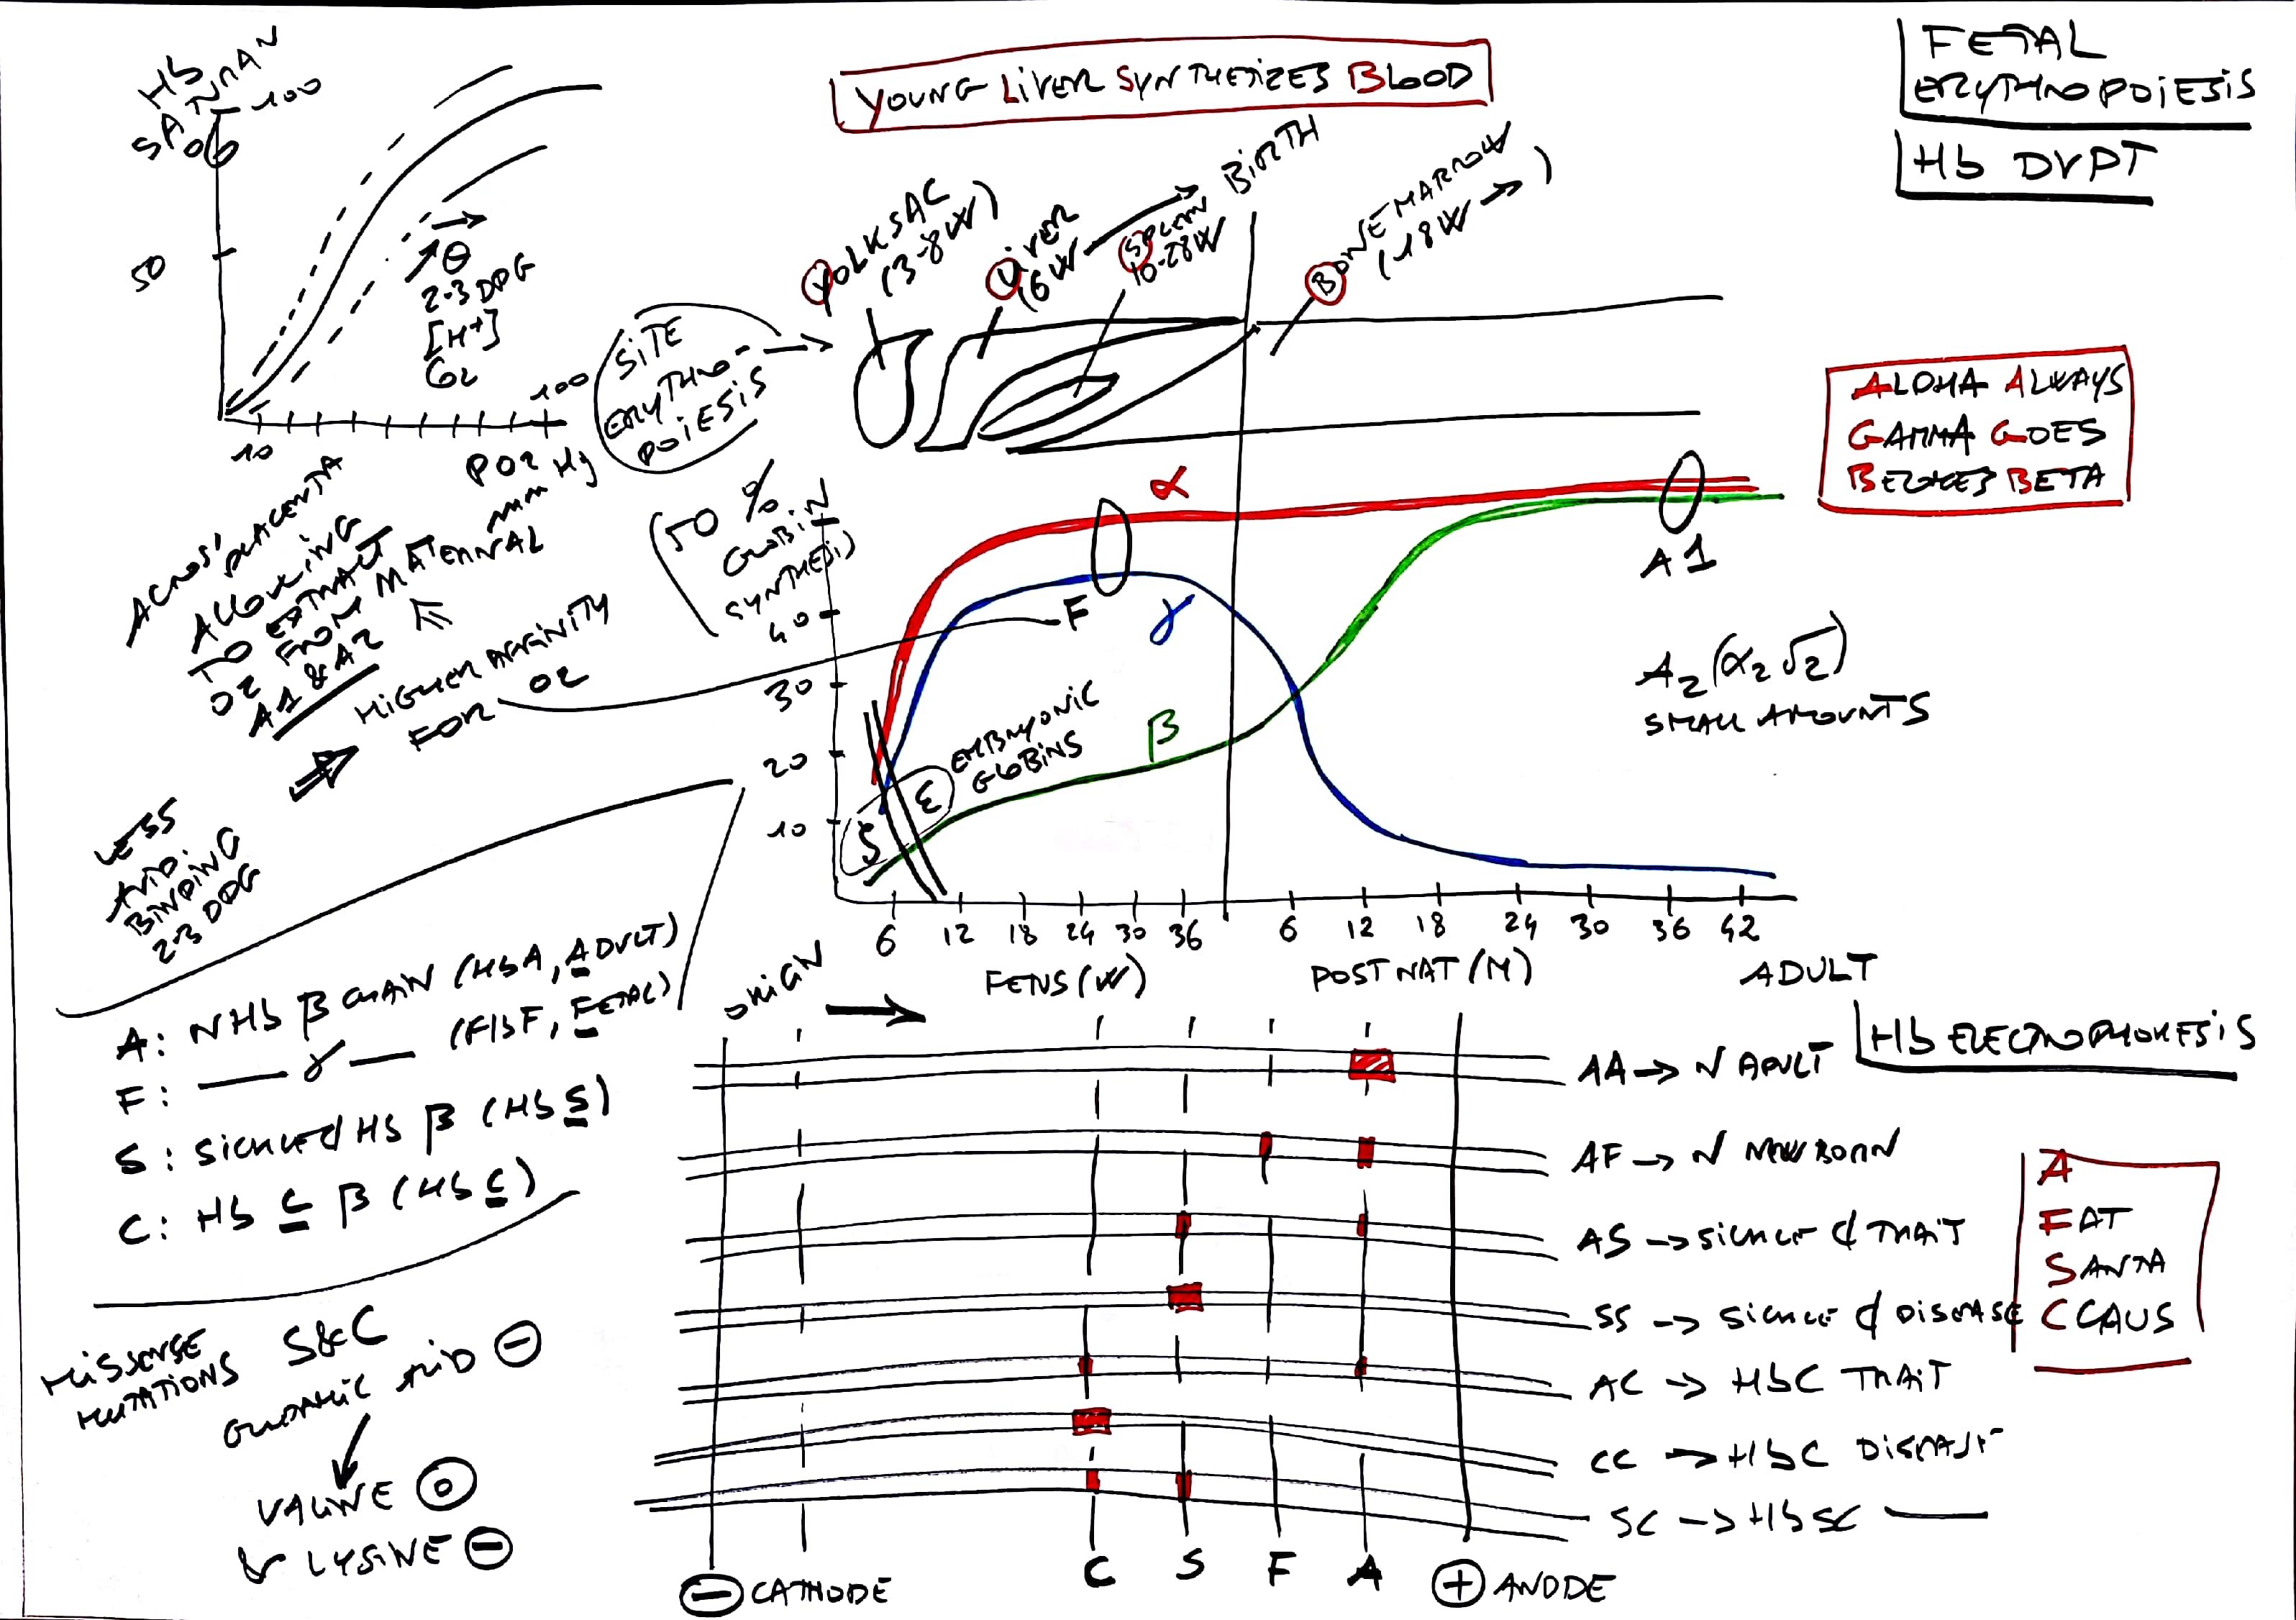 FETAL
ERYTHROPOIESIS
Hb DVPT
YOUNG LIVER SYNTHESIZES BLOOD
Hb
SATURAN
%
100
50
10
100
PO2
mm Hg
θ
2·3 DPG
[H+]
YOLK SAC
(3-8W)
LIVER
(6W
BIRTH
SPLEEN
10-28W
BONE MARROW
(18W → )
SITE
ERYTHRO-
POIESIS
ALPHA ALWAYS
GAMMA GOES
BECOMES BETA
(50 %
GLOBIN
SYNTHESIS)
40
30
20
10
α
γ
β
F
A1
A2 (α2 δ2)
SMALL AMOUNTS
ζ
ε
EMBRYONIC
GLOBINS
6 12 18 24 30 36
6 12 18 24 30 36 42
FETUS (W)
POSTNAT (M)
ADULT
ACROSS PLACENTA
ALLOWING
TO EXTRACT
O2 FROM MATERNAL
A1 & A2
HIGHER AFFINITY
FOR O2
LESS
AVID
BINDING
2·3 DPG
A: NHb β CHAIN (HbA, ADULT)
F: — γ — (HbF, FETAL)
S: SICKLE Hb β (HbS)
C: Hb C β (HbC)
MISSENSE
MUTATIONS
S&C
GLUTAMIC ACID ⊖
VALINE ⓞ
LYSINE ⊖
ORIGIN →
Hb ELECTROPHORESIS
AA → N ADULT
AF → N NEWBORN
AS → SICKLE ₵ TRAIT
SS → SICKLE ₵ DISEASE
AC → HbC TRAIT
CC → HbC DISEASE
SC → HbSC —
A
FAT
SANTA
CLAUS
⊖ CATHODE
C S F A
⊕ ANODE